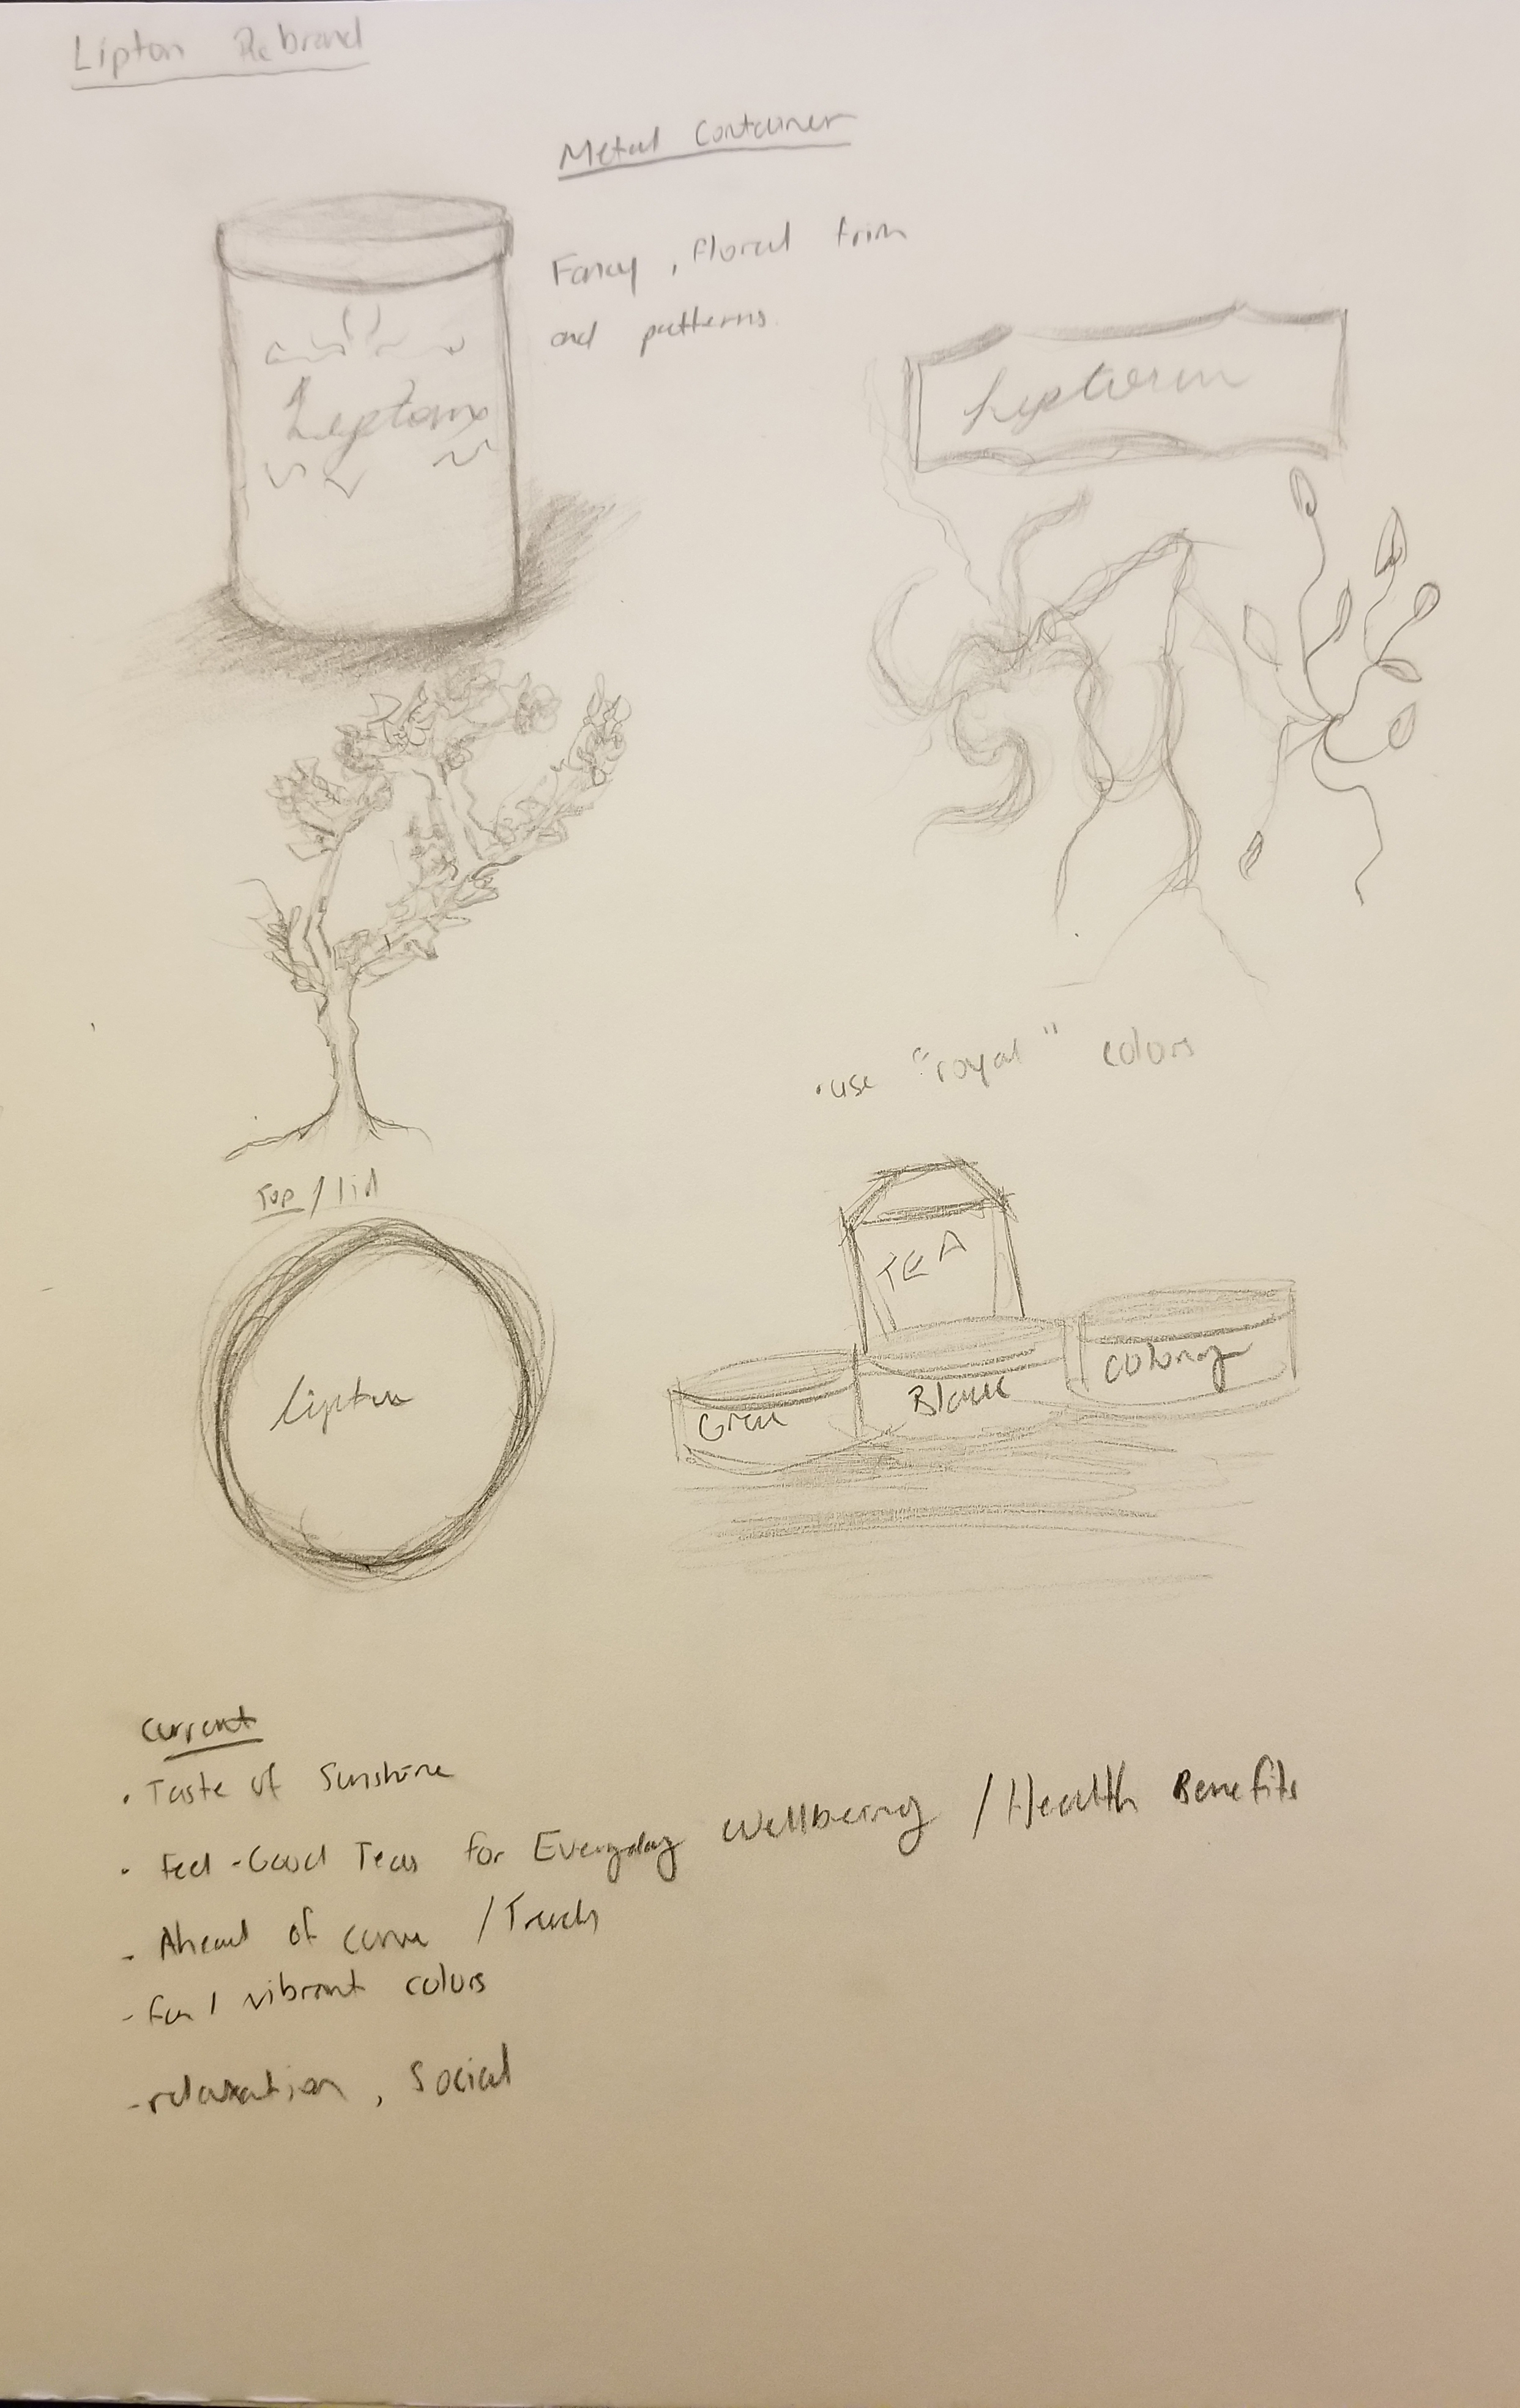 Lipton Rebrand
Metal Container
Fancy, floral trim
and patterns
Lipton
Lipton
• use "royal" colors
Top / lid
Lipton
TEA
Green
Black
Oolong
Current
• Taste of Sunshine
• Feel-Good Teas for Everyday Wellbeing / Health Benefits
- Ahead of curve / Trends
- fun / vibrant colors
- relaxation, Social